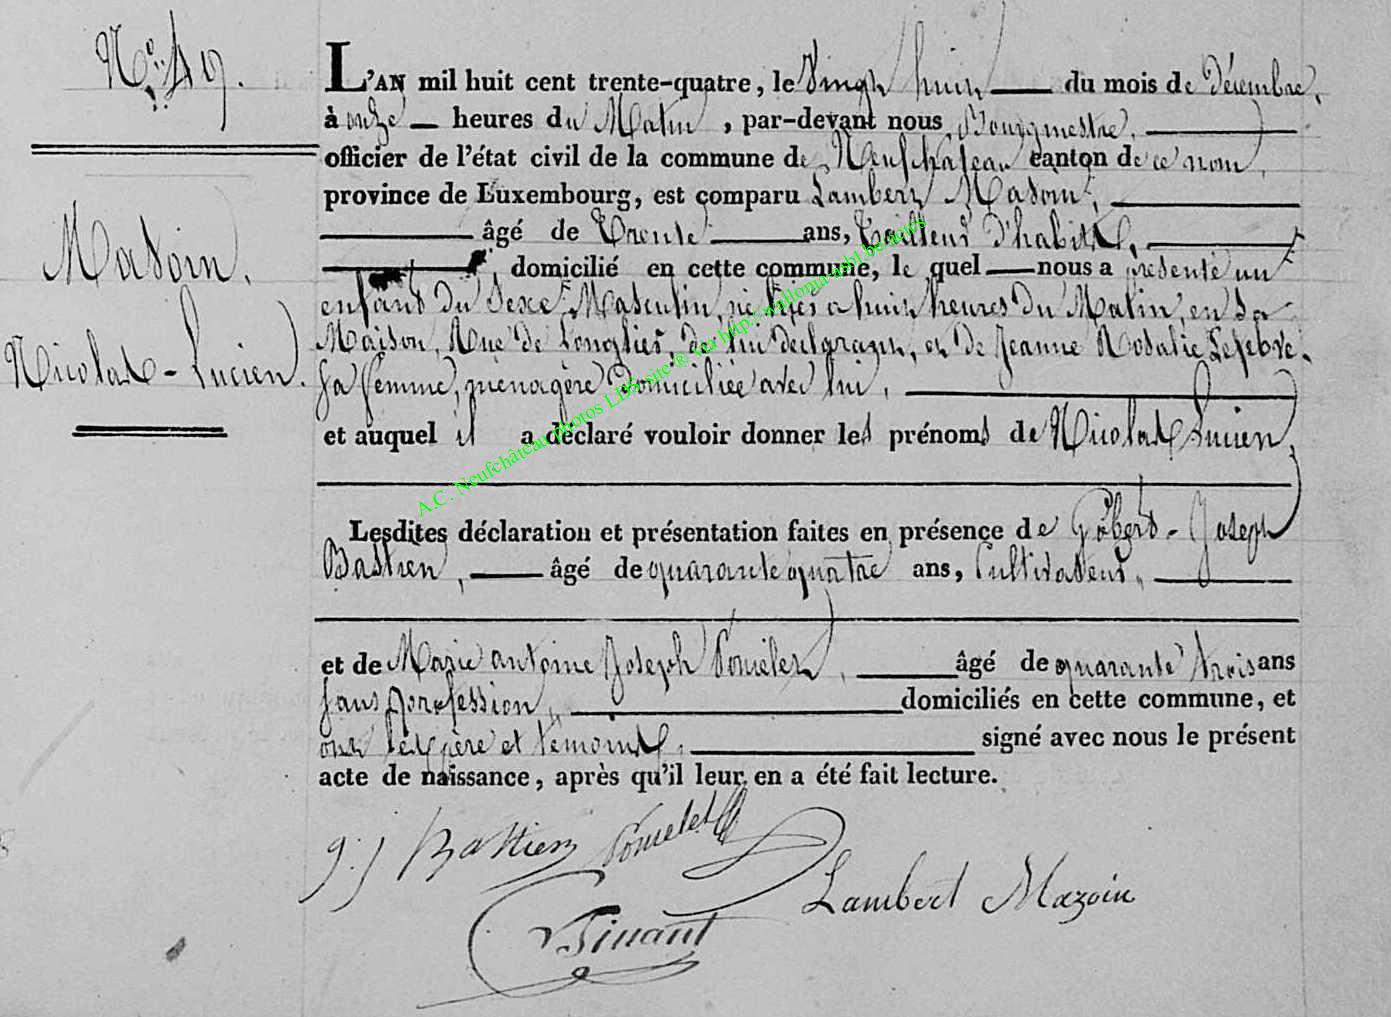 N.° 49.
Masoin.
Nicolas - Lucien.
L'AN mil huit cent trente-quatre, le Vingt huit du mois de décembre,
à onze heures du Matin, par-devant nous Bourgmestre,
officier de l'état civil de la commune de Neufchateau canton de ce nom,
province de Luxembourg, est comparu Lambert Masoin,
âgé de Trente ans, Tailleur d'habits,
domicilié en cette commune, le quel nous a présenté un
enfant du Sexe Masculin, né à huit heures du Matin, en Sa
Maison, Rue de Longlier, de lui déclarant, et de Jeanne Rosalie Lefebvre,
Sa femme, ménagère domiciliée avec lui,
et auquel il a déclaré vouloir donner les prénoms de Nicolas Lucien,
Lesdites déclaration et présentation faites en présence de Joseph
Bastien, âgé de quarante quatre ans, Cultivateur,
et de Marie antoine Joseph Poncelet, âgé de quarante trois ans
Sans profession, domiciliés en cette commune, et
ont les père et témoins, signé avec nous le présent
acte de naissance, après qu'il leur en a été fait lecture.
g. j Bastien Poncelet
Lambert Mazoin
A.C. Neufchâteau photos LDS site ® via http://wallonia-asbl.be/actes